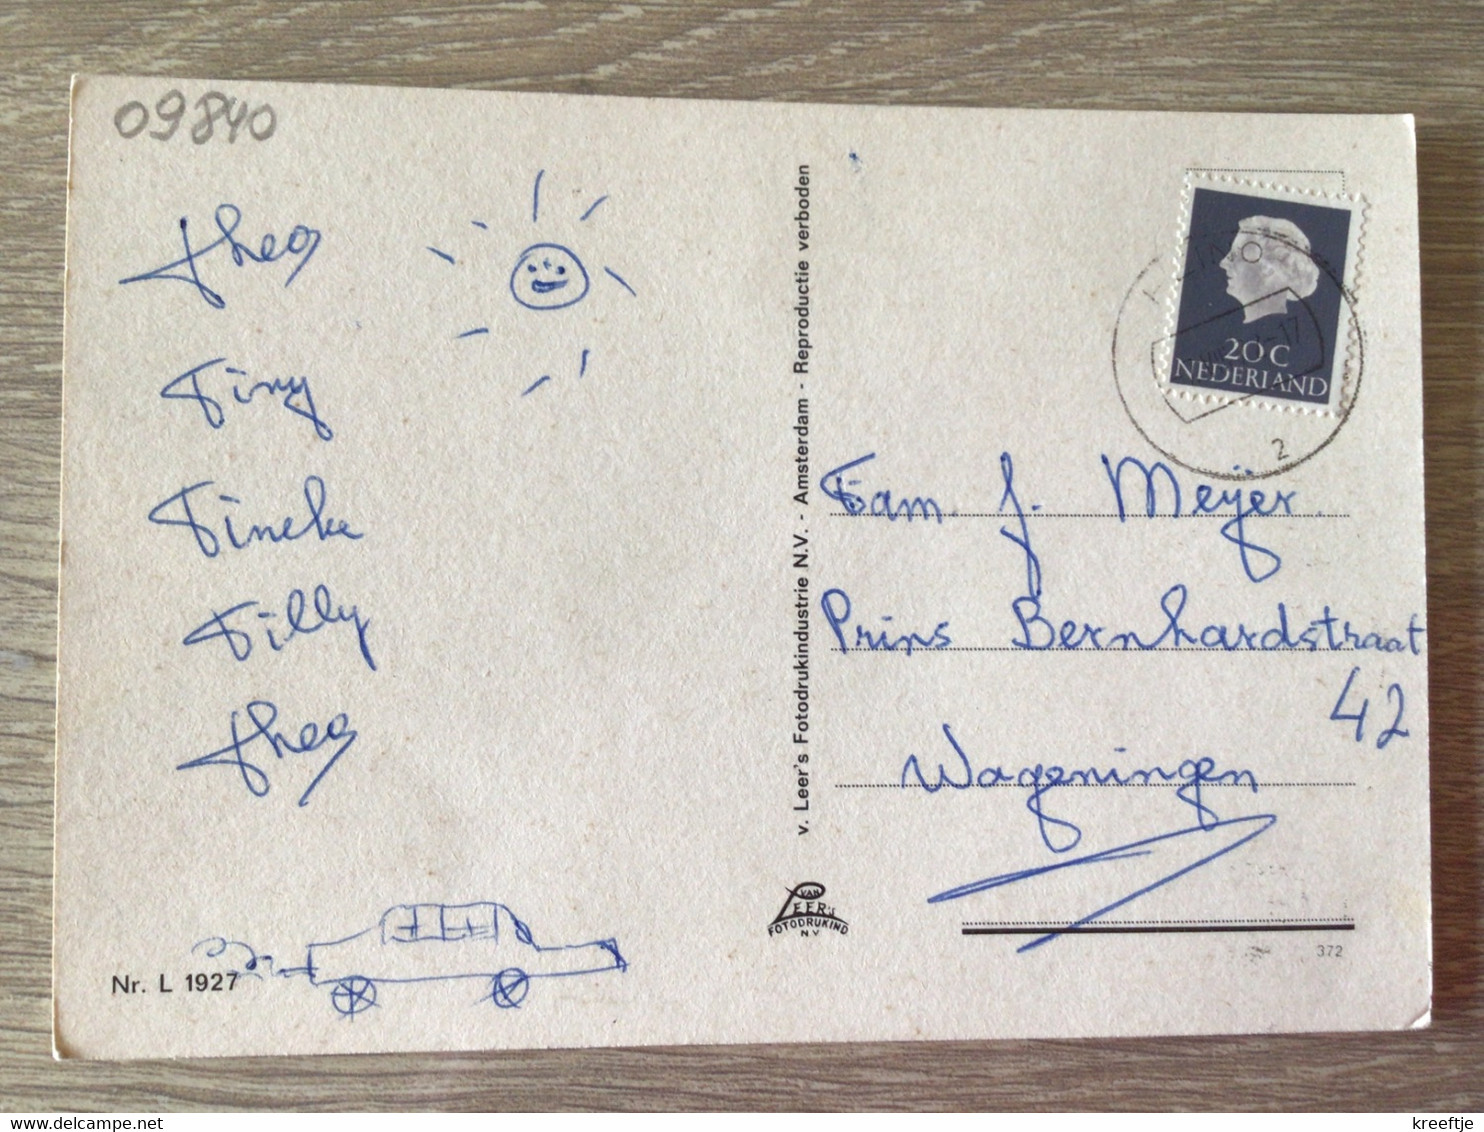 09840
Theo
Tiny
Tineke
Tilly
Theo
Nr. L 1927
v. Leer's Fotodrukindustrie N.V. - Amsterdam - Reproductie verboden
VAN
LEER'S
FOTODRUKIND
N.V.
20 C
NEDERLAND
2
Fam. J. Meijer.
Prins Bernhardstraat
42
Wageningen
372
delcampe.net
kreeftje